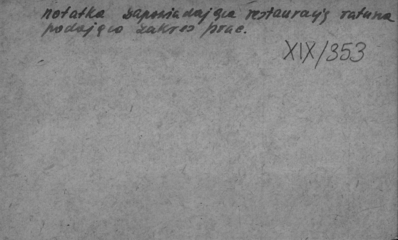 notatka zapowiadająca restaurację ratusza
podająca zakres prac.
XIX/353